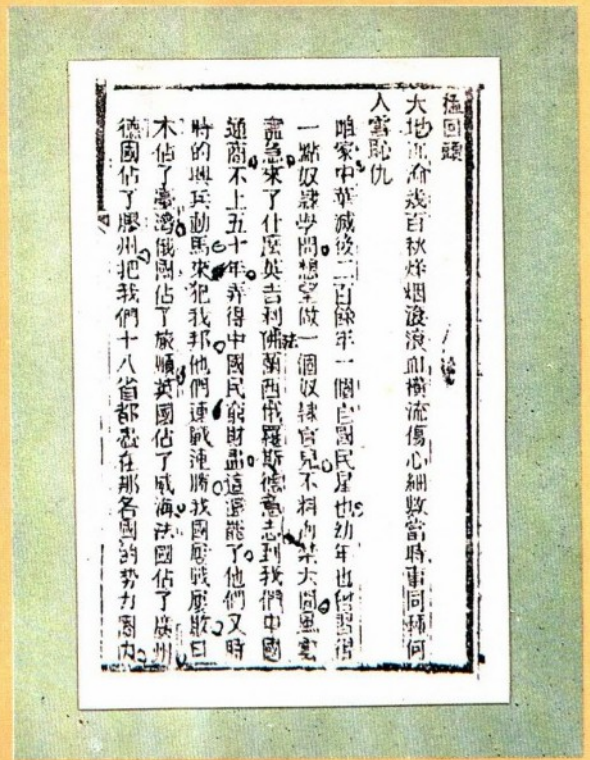 猛回頭
大地沉淪幾百秋烽烟滾滾血橫流傷心細數當時事同種何
人雪恥仇
咱家中華滅後二百餘年一個亡國民是也幼年也曾習得
一點奴隸學問想望做一個奴隸官兒不料海禁大開風雲
益急來了什麼英吉利佛蘭西俄羅斯德意志到我們中國
法
通商不上五十年弄得中國民窮財盡這還罷了他們又時
時的興兵動馬來犯我邦他們連戰連勝我國屢戰屢敗日
本佔了臺灣俄國佔了旅順英國佔了威海法國佔了廣州
德國佔了膠州把我們十八省都畫在那各國的勢力圈內